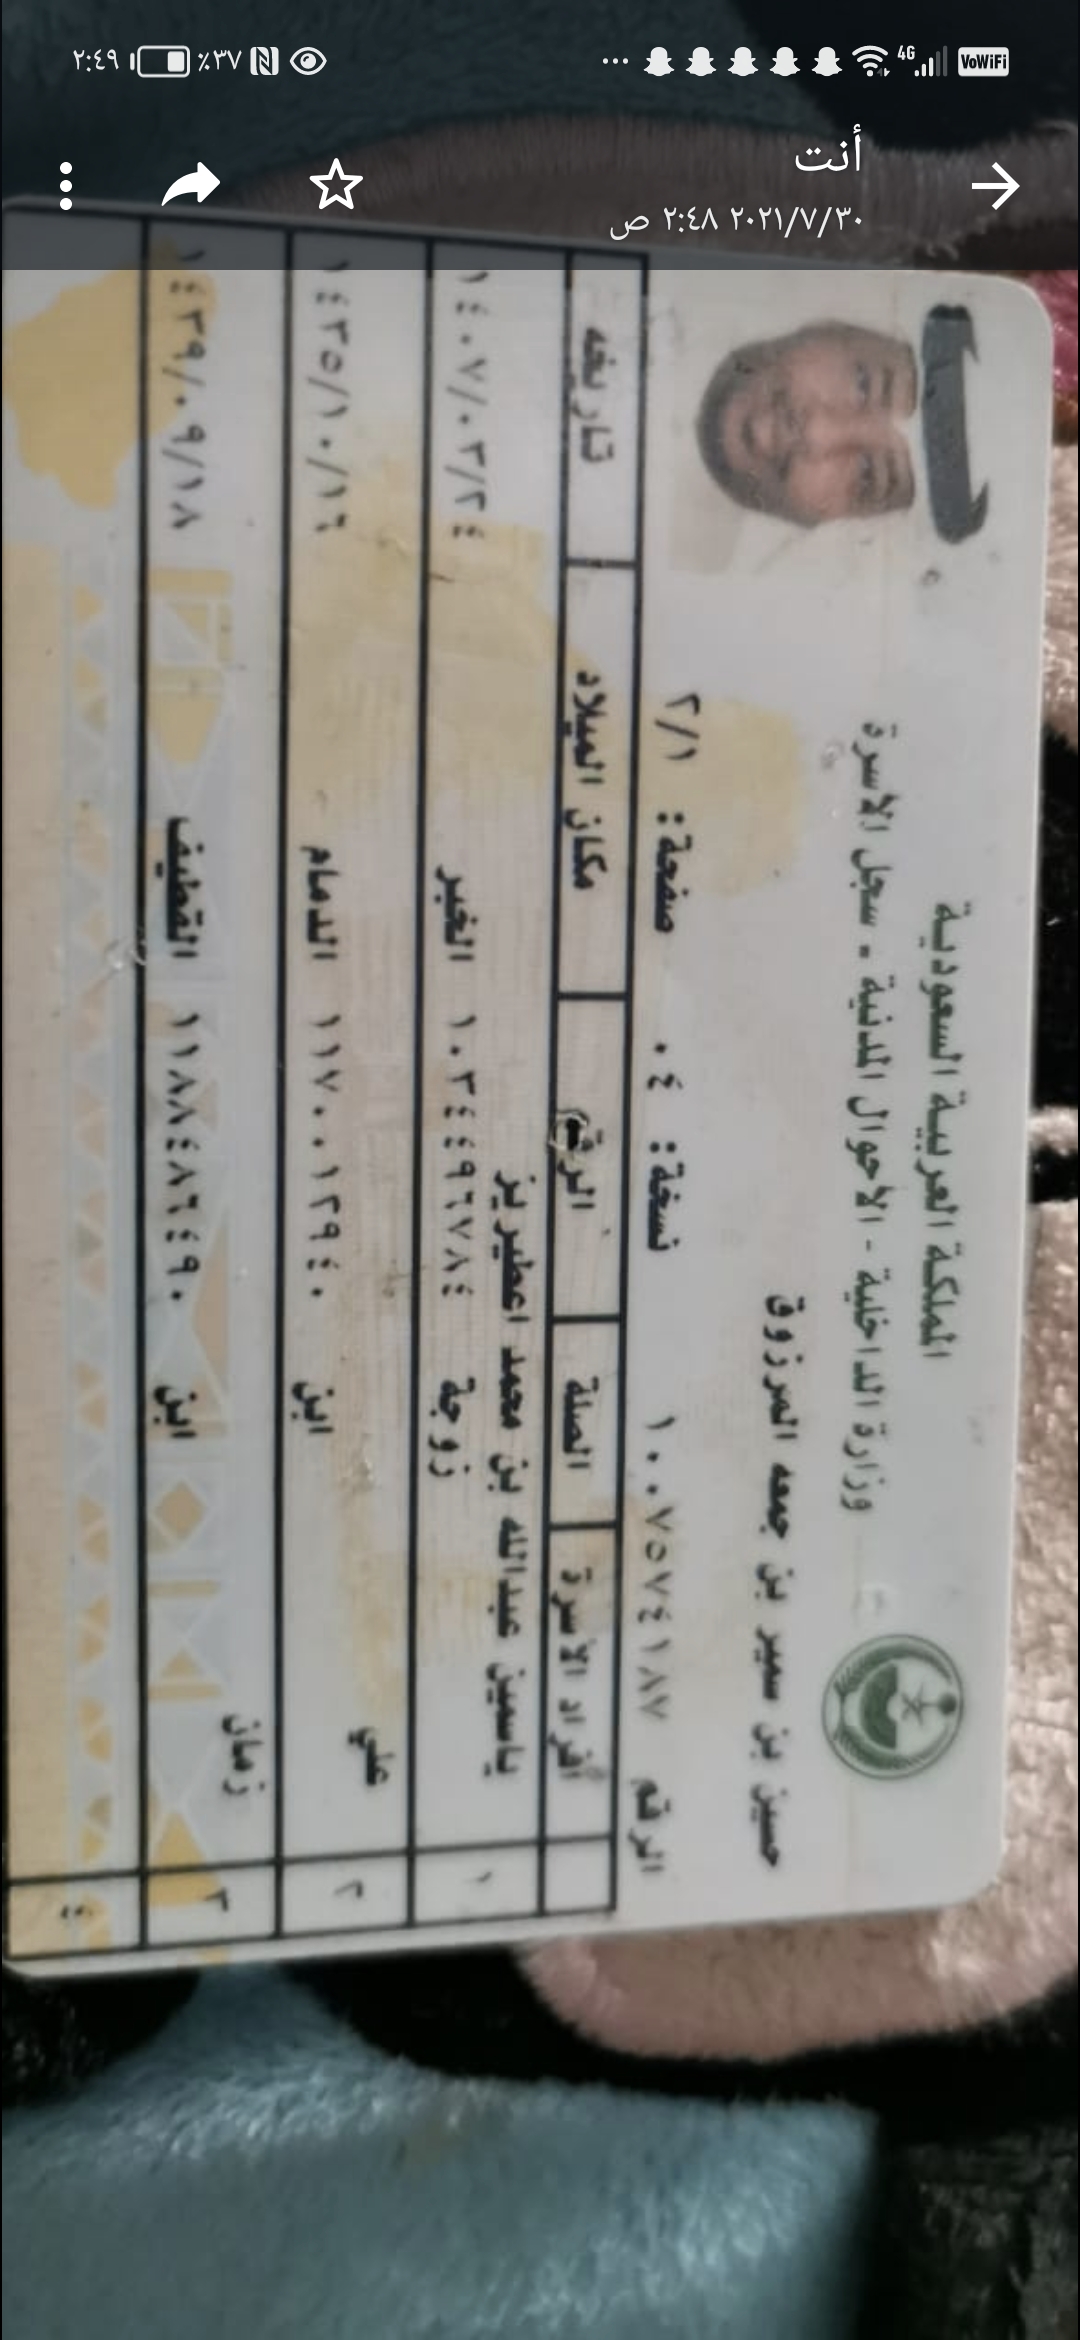 ٢:٤٩ ٪٣٧ 4G VoWiFi
أنت
٢٠٢١/٧/٣٠ ٢:٤٨ ص
المملكة العربية السعودية
وزارة الداخلية - الأحوال المدنية - سجل الأسرة
حسين بن سمير بن جمعه المرزوق
الرقم ١٠٠٧٥٧٤١٨٧ نسخة: ٠٤ صفحة: ٢/١
أفراد الأسرة الصلة الرقم مكان الميلاد تاريخه
١ ياسمين عبدالله بن محمد اعطيريز
زوجة ١٠٣٤٤٩٦٧٨٤ الخبر ١٤٠٧/٠٣/٢٤
٢ علي
ابن ١١٧٠٠١٢٩٤٠ الدمام ١٤٣٥/١٠/١٩
٣ زمان
ابن ١١٨٨٤٨٦٤٤٩٠ القطيف ١٤٣٩/٠٩/١٨
٤